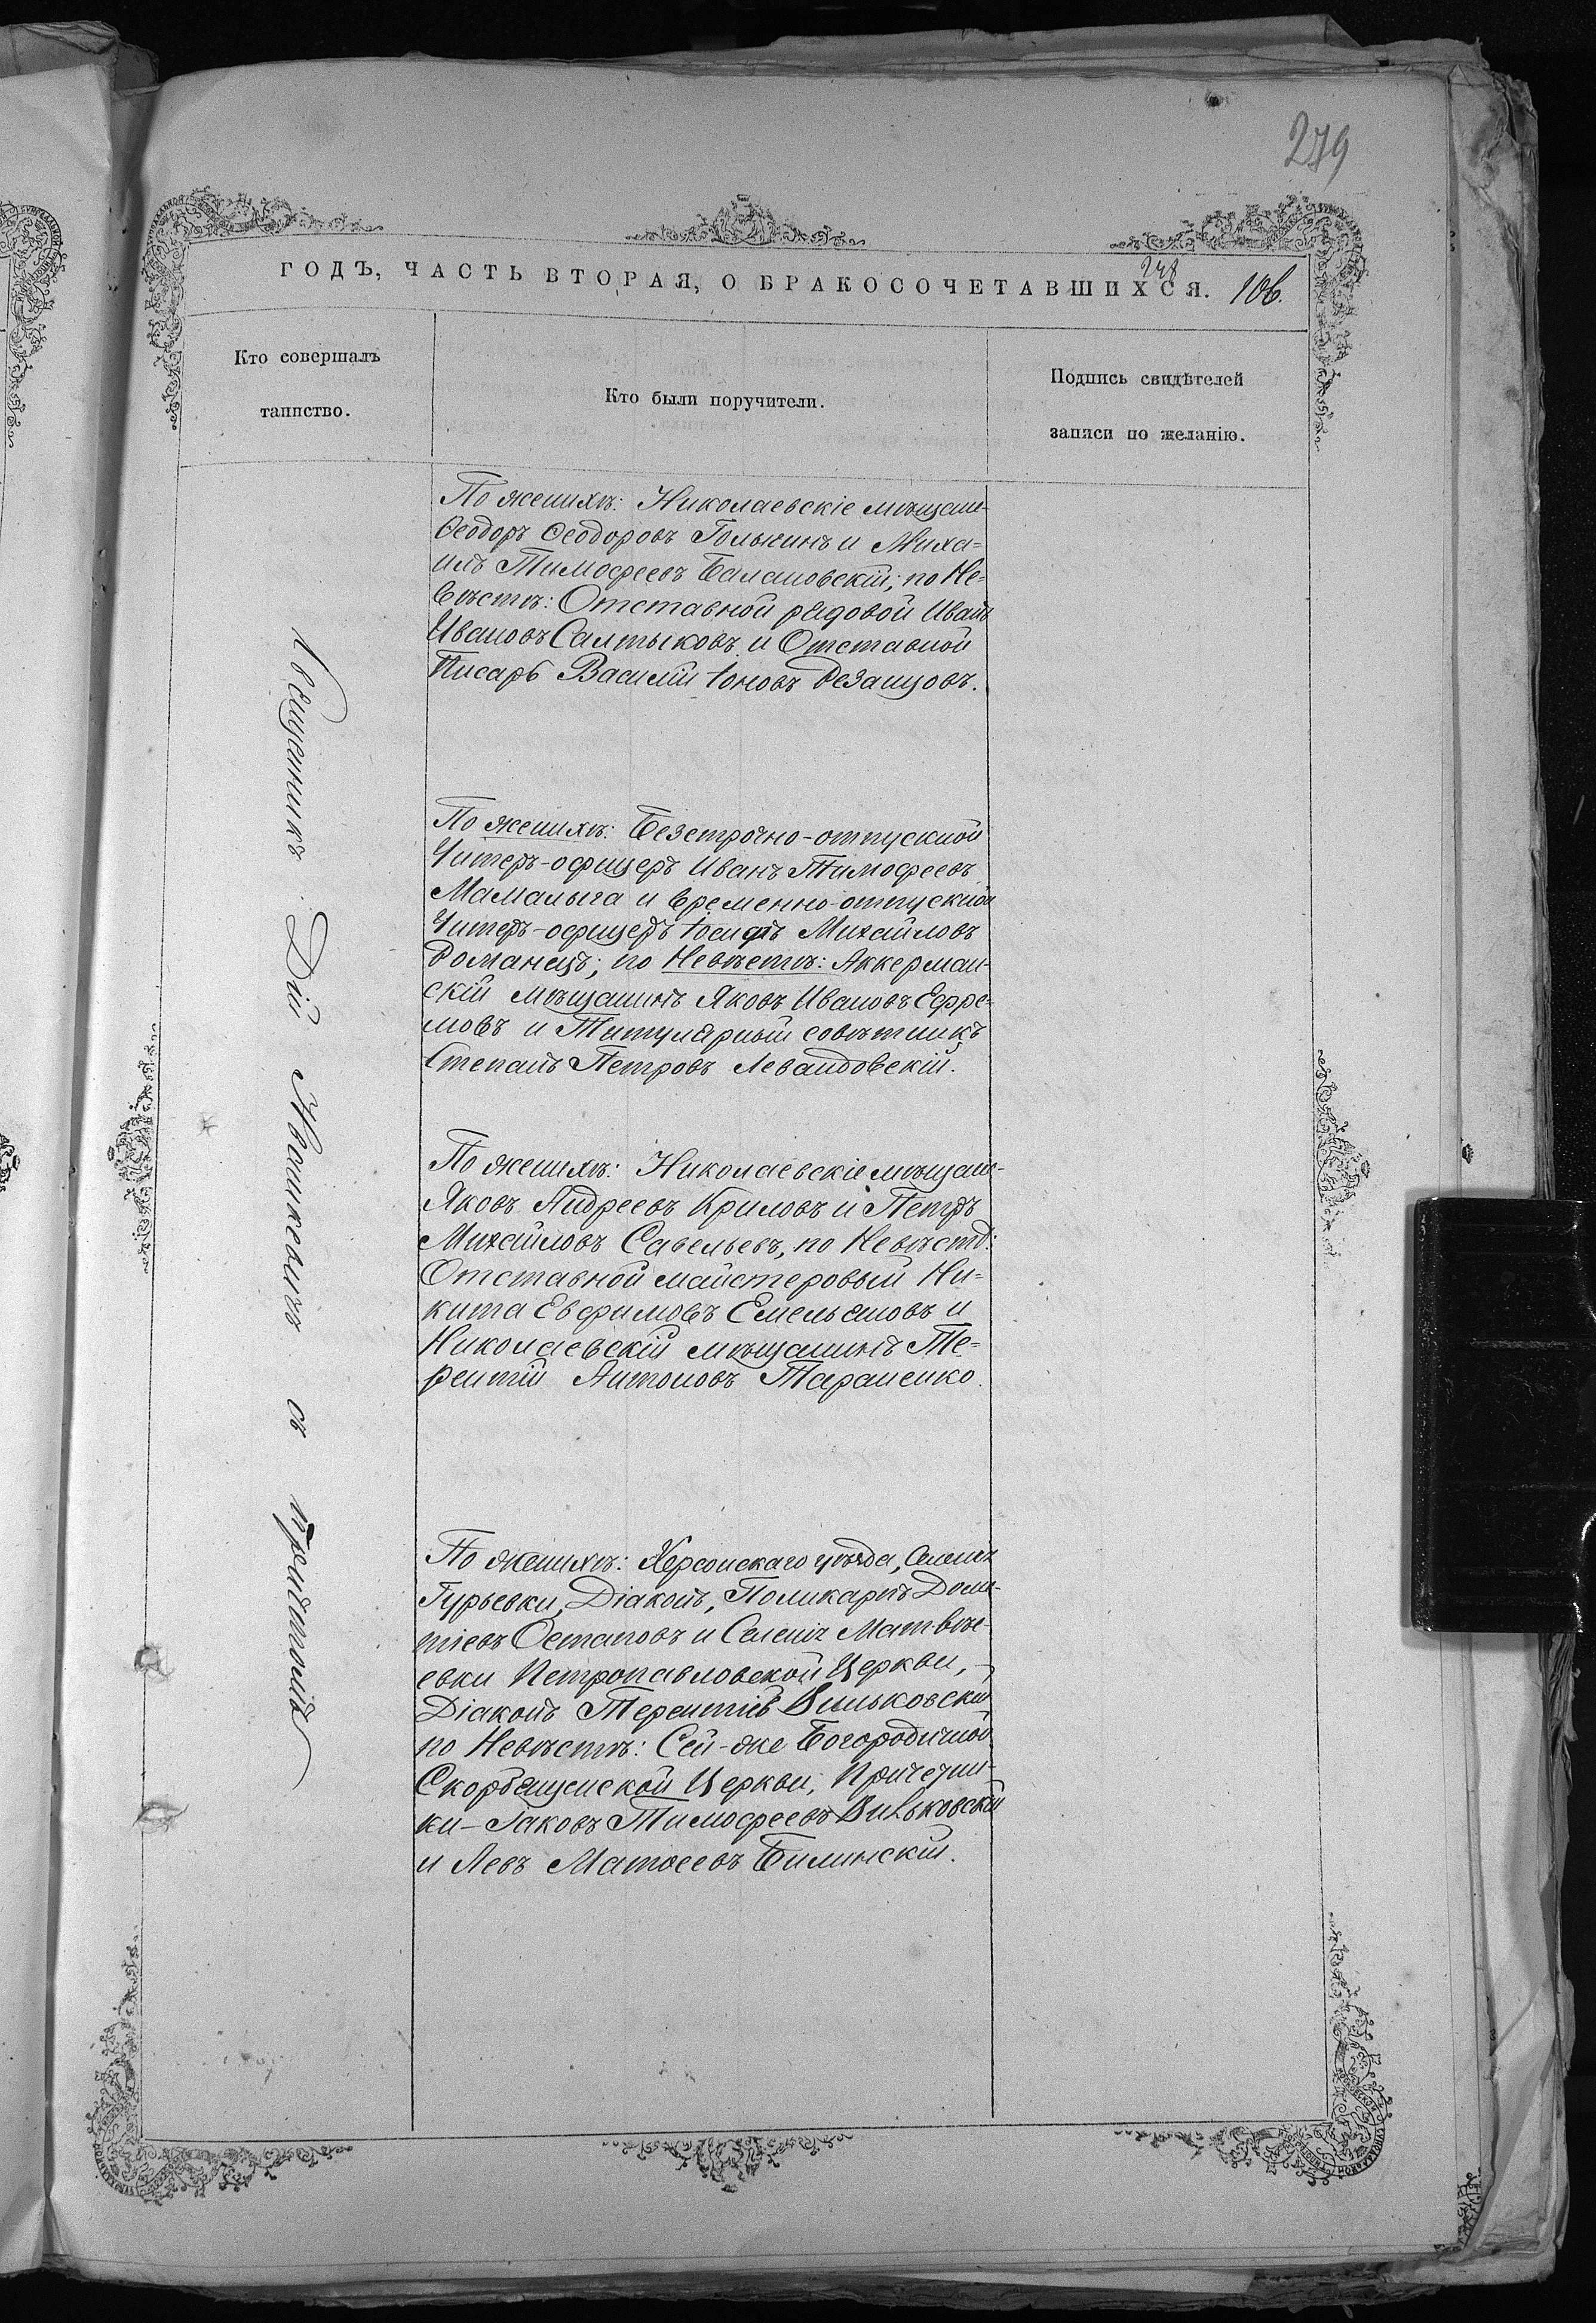 279
ГОДЪ, ЧАСТЬ ВТОРАЯ, О БРАКОСОЧЕТАВШИХСЯ. 106.
248
Кто совершалъ
таинство.
Кто были поручители.
Подпись свидѣтелей
записи по желанію.
По женихѣ: Николаевскіе мѣщане
Ѳеодоръ Ѳеодоровъ Голынинъ и Миха=
илъ Тимоѳеевъ Балановскій; по Не=
вѣстѣ: Отставной рядовой Иванъ
Ивановъ Салтыковъ и Отставной
Писарь Василій Іоновъ Резанцовъ.
По женихѣ: Безсрочно-отпускной
Унтеръ-офицеръ Иванъ Тимофеевъ
Мамалыга и временно-отпускной
Унтеръ-офицеръ Іосифъ Михайловъ
Романецъ; по Невѣстѣ: Аккерман-
скій мѣщанинъ Яковъ Ивановъ Ефре-
мовъ и Титулярный совѣтникъ
Степанъ Петровъ Левандовскій.
По женихѣ: Николаевскіе мѣщане-
Яковъ Андреевъ Криловъ и Петръ
Михайловъ Савельевъ, по Невѣстѣ:
Отставной майстеровый Ни=
кита Евфимовъ Емельяновъ и
Николаевскій мѣщанинъ Те=
рентій Антоновъ Тараненко.
По женихѣ: Херсонскаго уѣзда, Селенія
Гурьевки, Діаконъ, Поликарпъ Доми-
тіевъ Остаповъ и Селенія Матвѣ-
евки Петропавловской Церкви,
Діаконъ Терентій Виньковскій
по Невѣстѣ: Сей-же Богородичной
Скорбященской Церкви, Причетни-
ки - Іаковъ Тимофеевъ Виньковскій
и Левъ Матѳеевъ Билинскій.
Священникъ Дій с